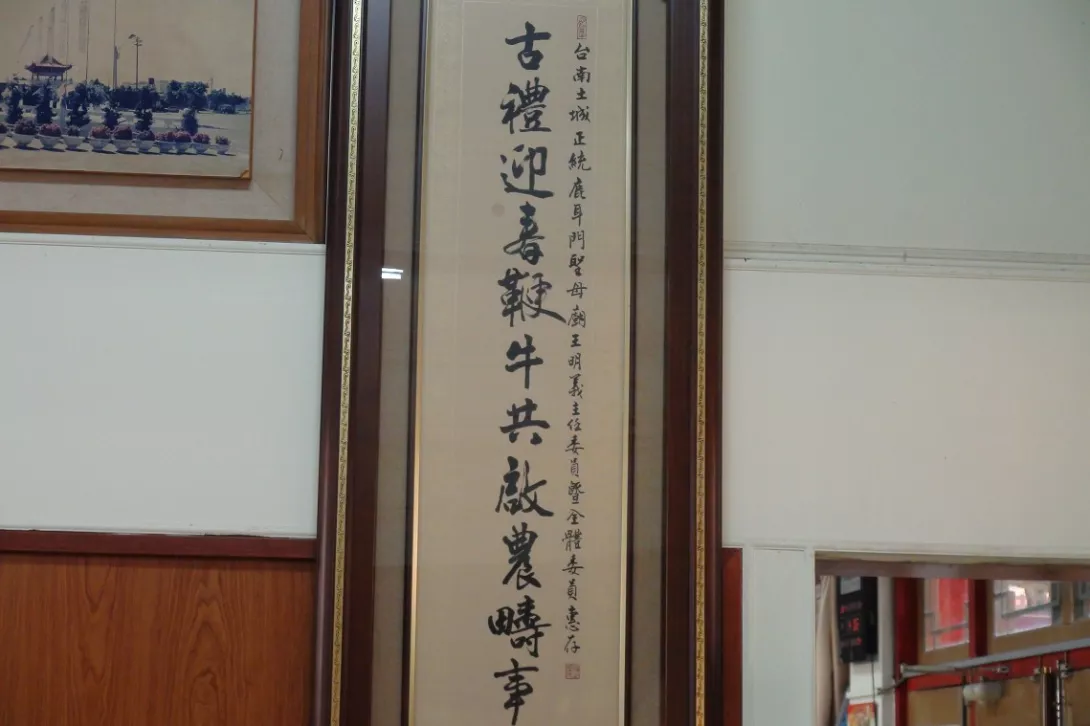 台南土城正統鹿耳門聖母廟王明義主任委員暨全體委員惠存
古禮迎春鞭牛共啟農疇事